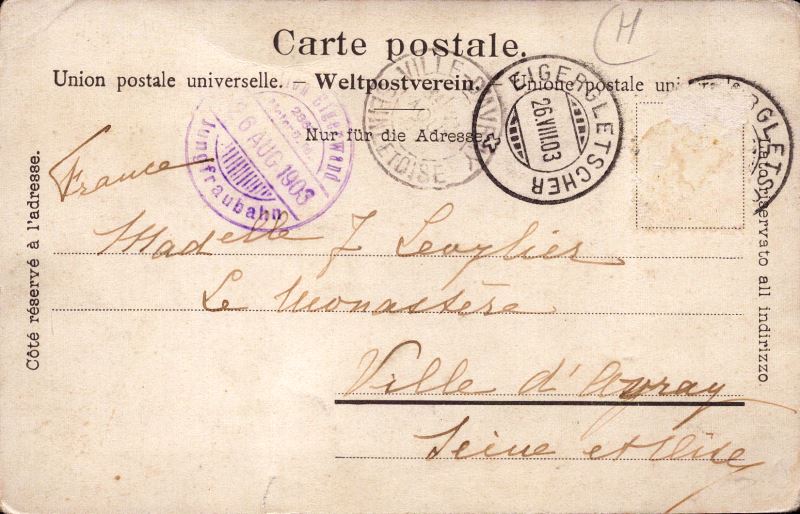 H
Carte postale.
Union postale universelle. — Weltpostverein. — Unione postale universale
Nur für die Adresse.
Côté réservé à l'adresse.
Lato riservato all indirizzo.
Eigerwand
26 AUG 1903
Jungfraubahn
VILLE D'AVRAY
SEINE ET OISE
EIGERGLETSCHER
26.VIII.03
France
Madelle J Levylier
Le Monastère
Ville d'Avray
Seine et Oise